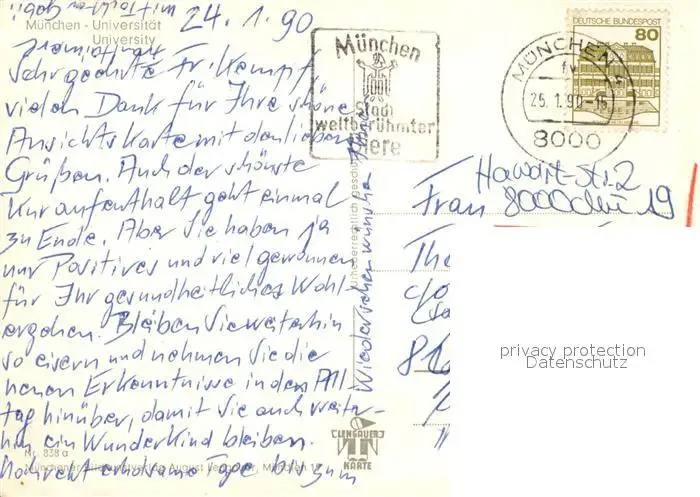 24.1.90
München - Universität
University
Sehr geehrte Fr. Kempf,
vielen Dank für Ihre schöne
Ansichtskarte mit den lieben
Grüßen. Auch der schönste
Kuraufenthalt geht einmal
zu Ende. Aber Sie haben ja
nur Positives und viel gewonnen
für Ihr gesundheitliches Wohl-
ergehen. Bleiben Sie weiterhin
so eisern und nehmen Sie die
neuen Erkenntnisse in den All-
tag hinüber, damit Sie auch weiter-
hin ein Wunderkind bleiben.
Noch recht erholsame Tage bis zum
Wiedersehen wünschen Ihnen
Nr. 838 a
München
Stadt
weltberühmter
Biere
MÜNCHEN
fv
25.1.90-16
8000
DEUTSCHE BUNDESPOST
80
Str. 2
Frau 8000 Mü 19
urheberrechtlich
LENGAUER
KARTE
privacy protection
Datenschutz